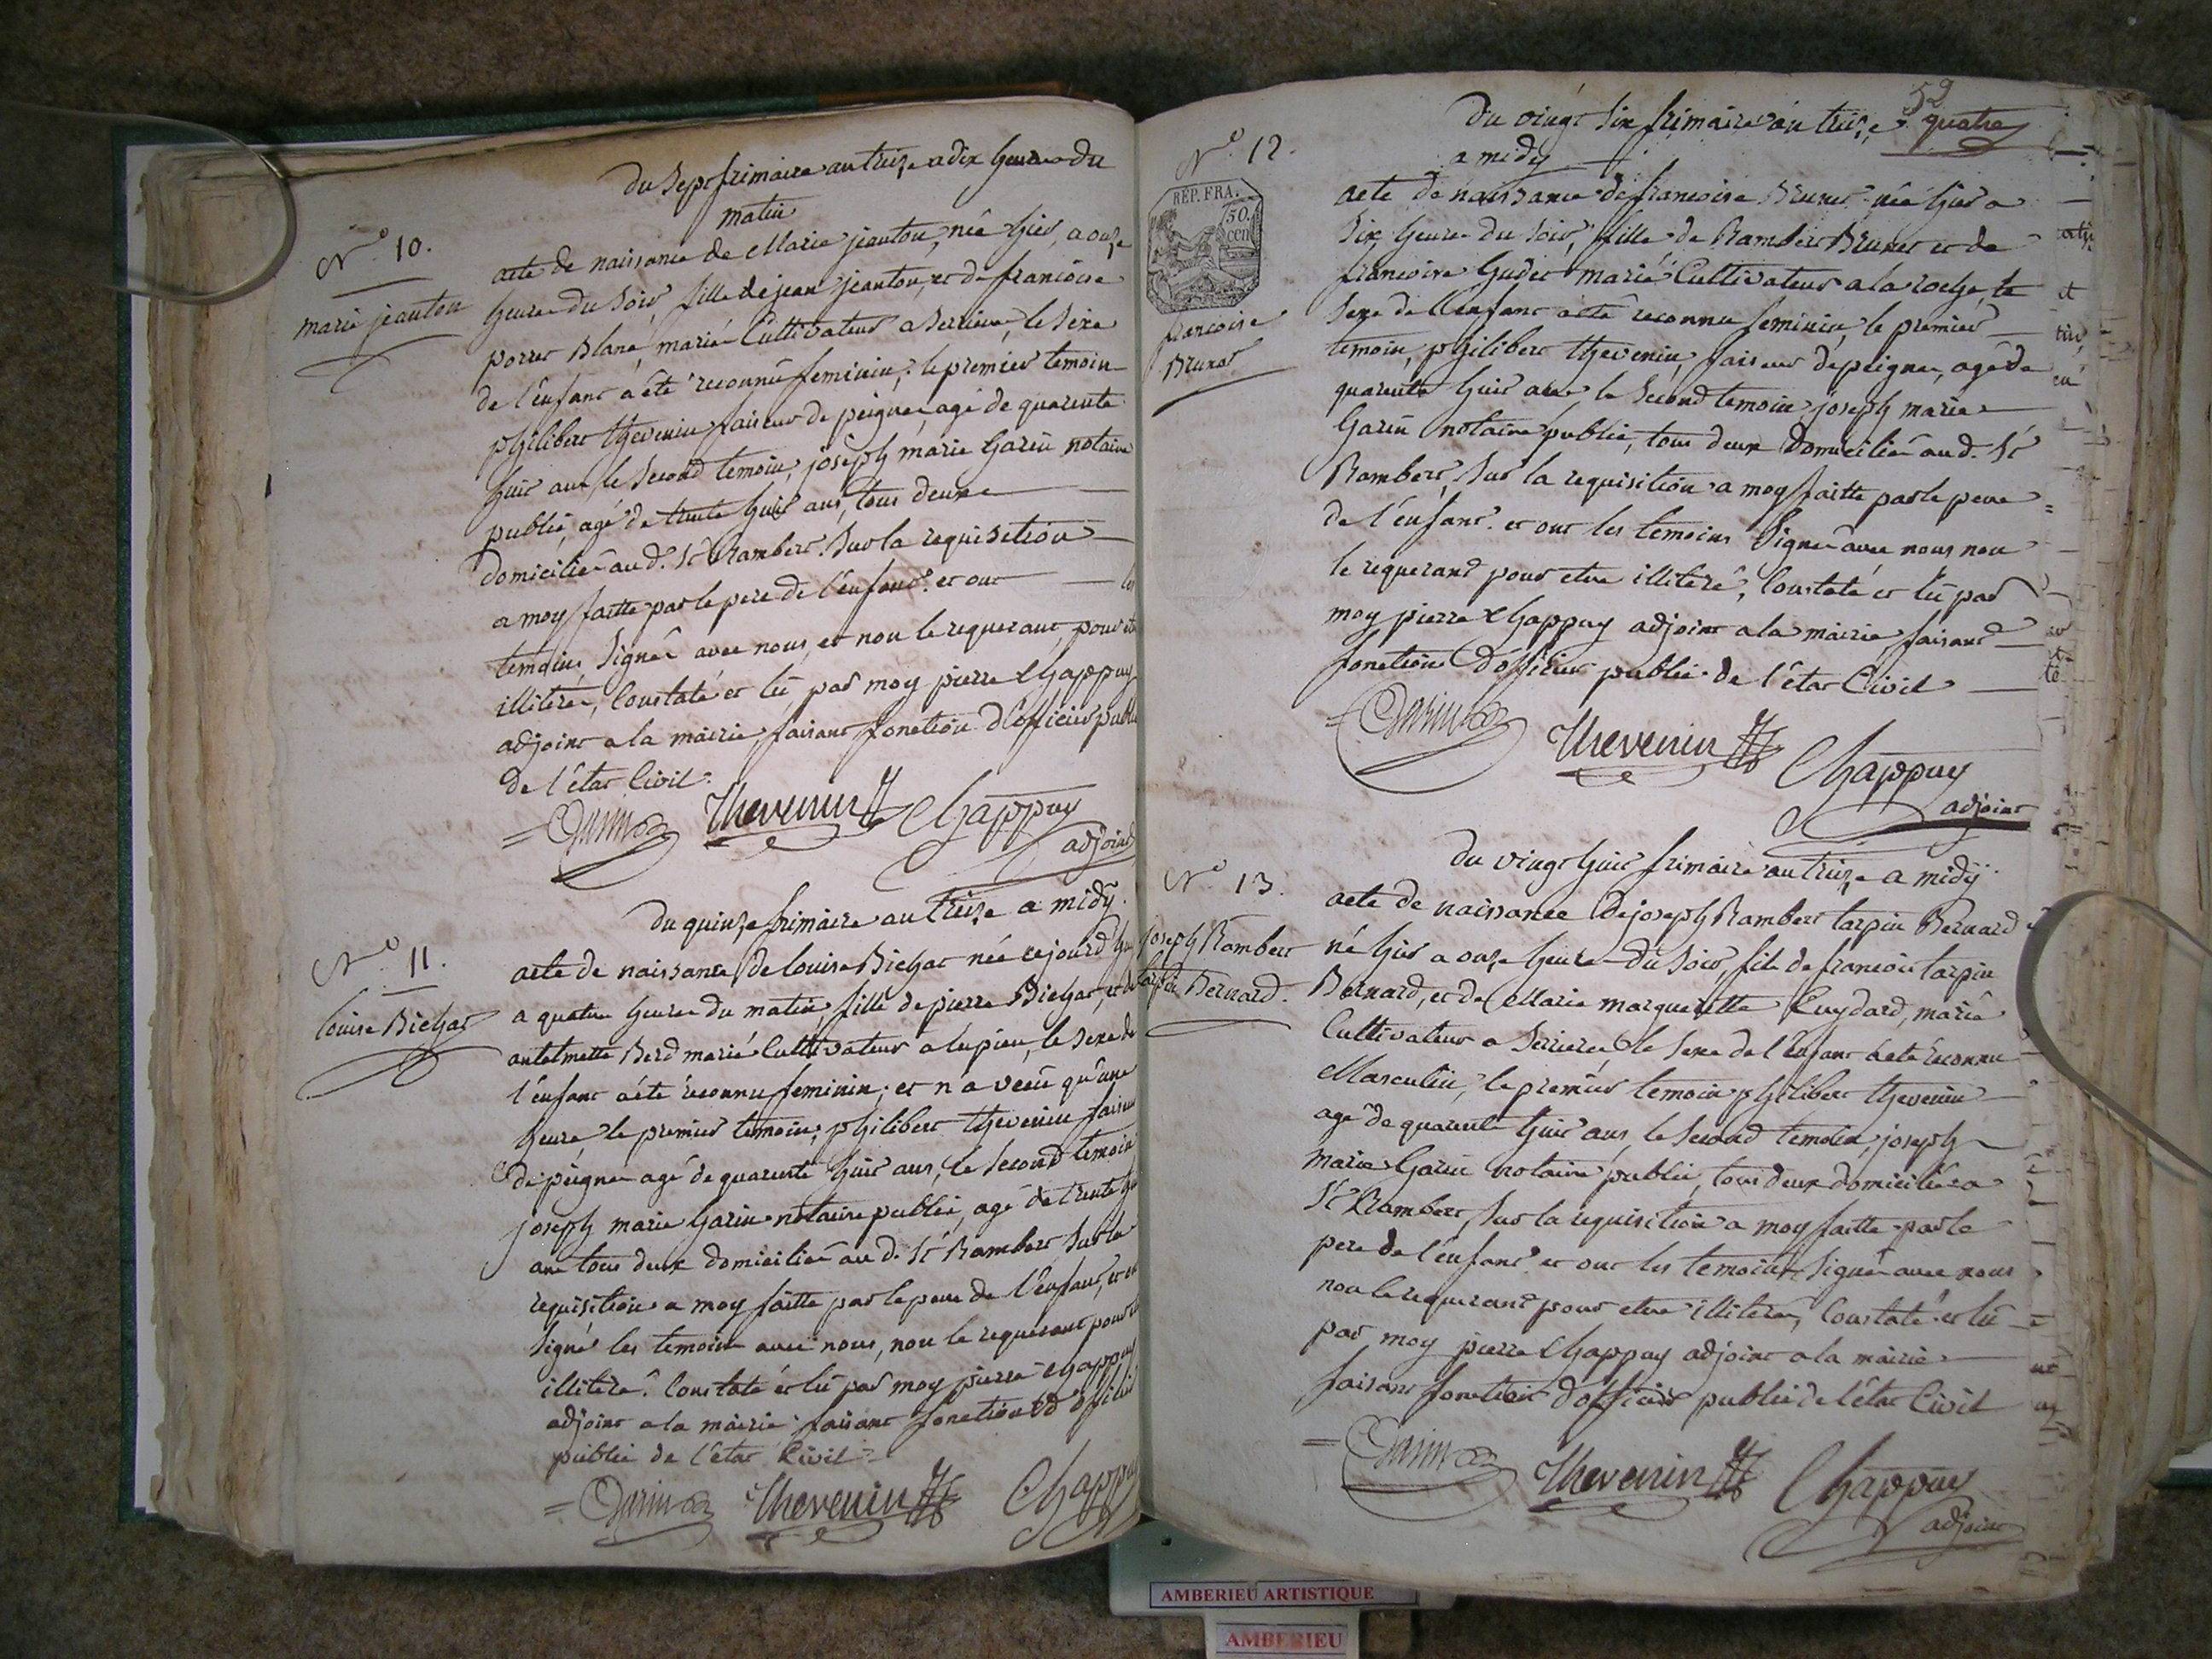 du Sept frimaire an treize a dix heure du
matin
N.o 10.
marie jeanton
acte de naissance de Marie jeanton, née hier, a onze
heure du Soir, fille de jean jeanton, et de francoise
porret Blanc, marié Cultivateur a Serriere, le Sexe
de l'enfant a êté reconnu feminin; le premier temoin
philibert thevenin faiseur de peignes agé de quarente
huit ans, le Second temoin, joseph marie Garin notaire
public, agé de trente huit ans, tous deux
domicilié aud. St Rambert. Sur la requisition
a moy faitte par le pere de l'enfant. et ont les
temoins Signé avec nous, et non le requerant, pour etre
illiteré, Constaté et lû, par moy pierre Chappuy
adjoint a la mairie, faisant fonction d'officier public
de l'état Civil.
Garin Thevenin Chappuy
adjoint
du quinze frimaire an treize a midy.
N.o 11.
Louise Bichat
acte de naissance de Louise Bichat née cejourd'hui
a quatre heure du matin, fille de pierre Bichat, et de
antelmette Berd marié Cultivateur a lupieu, le Sexe de
l'enfant a êté reconnu feminin; et n'a vecû qu'une
heure le premier temoin, philibert thevenin faiseur
de peigne agé de quarente huit ans, le Second temoin
joseph marie Garin notaire public, agé de trente huit
ans tous deux domicilié aud. St Rambert Sur la
requisition a moy faitte par le pere de l'enfant, et ont
Signé les temoins avec nous, non le requerant pour etre
illiteré. Constaté et lû par moy pierre Chappuy
adjoint a la mairie faisant fonction d'officier
public de l'état Civil
Garin Thevenin Chappuy
52
du vingt Six frimaire an treize quatre
a midy
N.o 12.
REP. FRA.
50.
cen
francoise
Brunet
acte de naissance de francoise Brunet née hier a
Six heure du Soir, fille de Rambert Brunet et de
francoise Gudet marié Cultivateur a la roche, le
Sexe de l'enfant a êté reconnu feminin, le premier
temoin, philibert thevenin, faiseur de peigne, agé de
quarente huit ans le Second temoin joseph marie
Garin notaire public, tous deux Domicilié aud. St
Rambert, Sur la requisition a moy faitte par le pere
de l'enfant. et ont les temoins Signé avec nous non
le requerant pour etre illiteré, Constaté et lû par
moy pierre Chappuy adjoint a la mairie, faisant
fonction d'officier public de l'état Civil
Garin Thevenin Chappuy
adjoint
du vingt huit frimaire an treize a midy
N.o 13.
joseph Rambert
tarpin Bernard.
acte de naissance de joseph Rambert tarpin Bernard
né hier a onze heure du Soir, fils de francois tarpin
Bernard, et de Marie marguerette Luydard, marié
Cultivateur a Serriere, le Sexe de l'enfant a êté reconnu
Masculin, le premier temoin philibert thevenin
agé de quarente huit ans, le Second temoin, joseph
marie Garin notaire public, tous deux domicilié a
St Rambert, Sur la requisition a moy faitte par le
pere de l'enfant et ont les temoins Signé avec nous
non le requerant pour etre illiteré, Constaté et lû
par moy pierre Chappuy adjoint a la mairie
faisant fonction d'officier public de l'état Civil
Garin Thevenin Chappuy
adjoint
AMBERIEU ARTISTIQUE
AMBERIEU